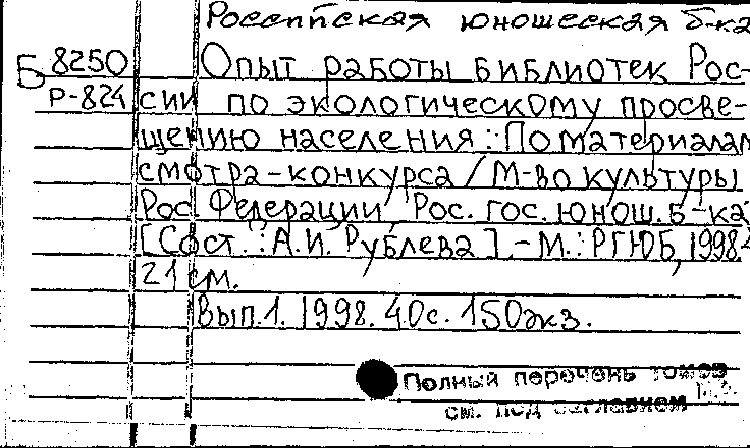 Российская юношеская б-ка
Б 8250 Опыт работы библиотек Рос-
Р-824 сии по экологическому просве-
щению населения: По материалам
смотра-конкурса / М-во культуры
Рос. Федерации, Рос. гос. юнош. б-ка
[Сост.: А.И. Рублева]. - М.: РГЮБ, 1998.-
21 см.
Вып.1. 1998. 40с. 150экз.
Полный перечень томов
см. под заглавием